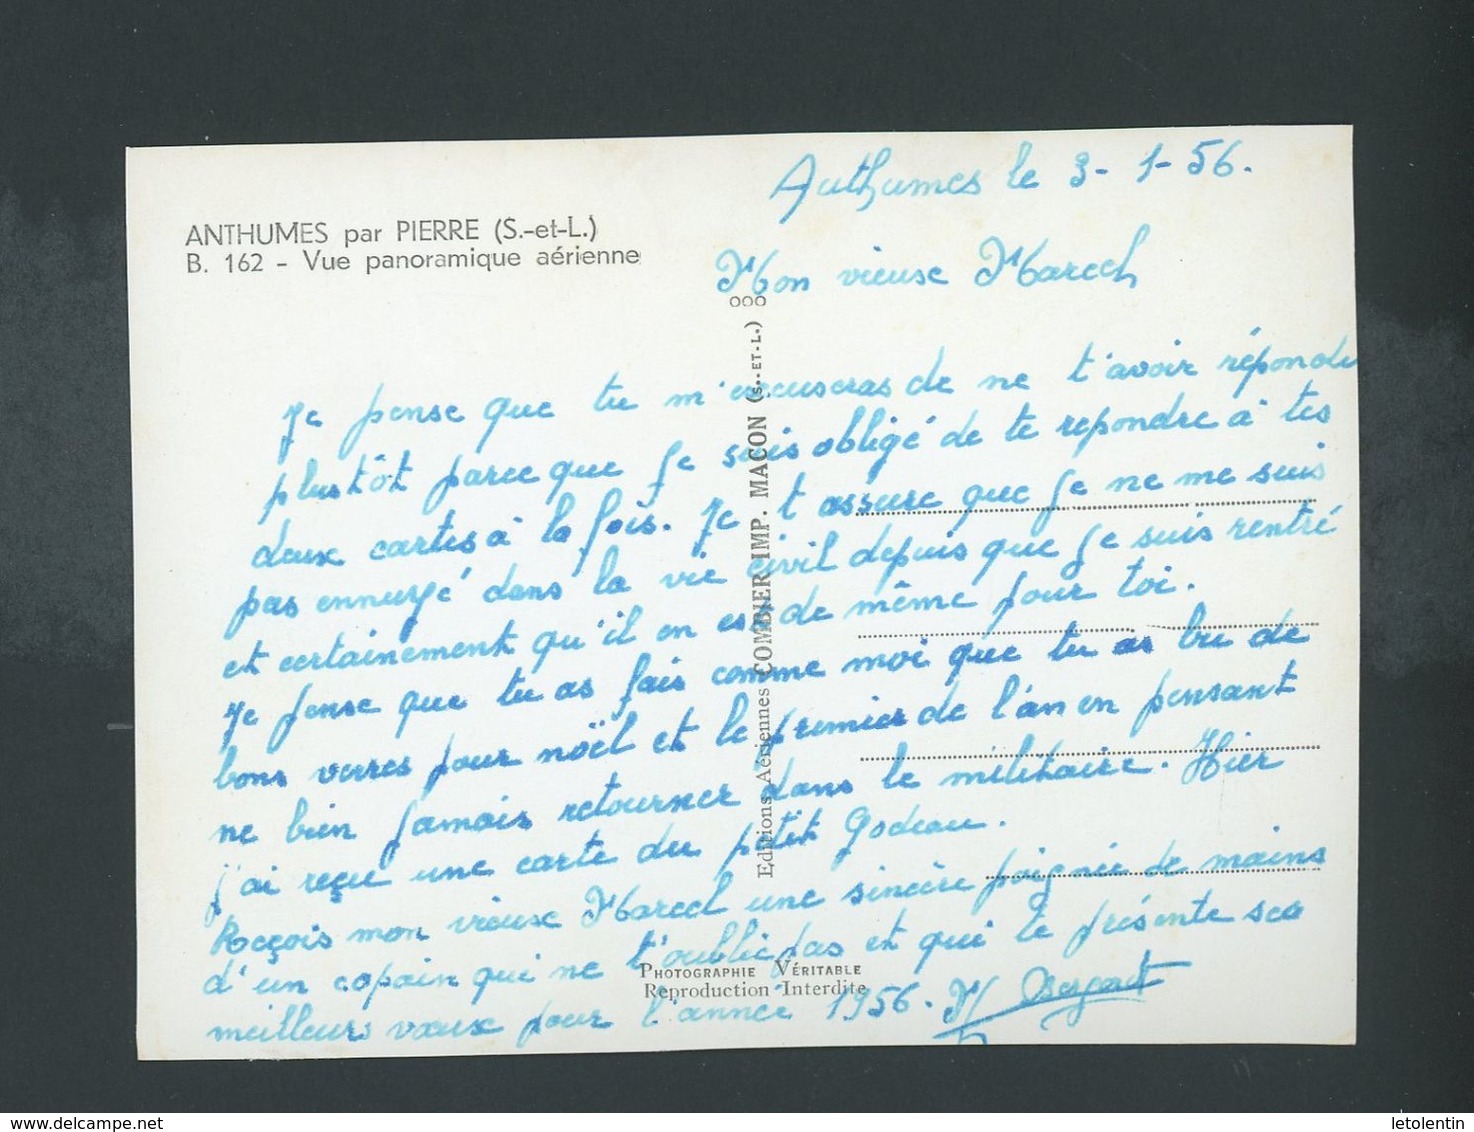 Authumes le 3-1-56.
ANTHUMES par PIERRE (S.-et-L.)
B. 162 - Vue panoramique aérienne
Mon vieuse Marcel
Je pense que tu m'excuseras de ne t'avoir répondu
plustôt parce que je suis obligé de te repondre à tes
deux cartes à la fois. Je t assure que je ne me suis
pas ennuyé dans la vie civil depuis que je suis rentré
et certainement qu'il en est de même pour toi.
Je pense que tu as fais comme moi que tu as bu de
bons verres pour noël et le premier de l'an en pensant
ne bien jamais retourner dans le militaire. Hier
j'ai reçu une carte du petit Godeau.
Reçois mon vieuse Marcel une sincère poignée de mains
d'un copain qui ne t'oublie pas et qui te présente sea
meilleurs vœux pour l'année 1956.
Editions Aériennes COMBIER IMP. MACON (S.-ET-L.) ooo
PHOTOGRAPHIE VÉRITABLE
Reproduction Interdite
letolentin